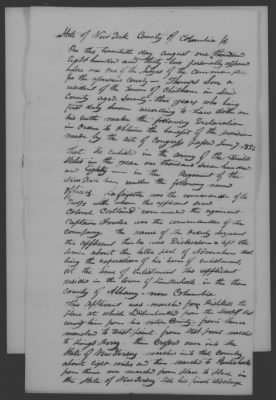 State of New York County of Columbia ss.
On this twentieth day august one thousand
Eight hundred and thirty two personally appeared
before me one of the Judges of the common pleas
for the aforesaid County — Thomas
resident of the town of Chatham in said
County aged Seventy three years who being
first duly sworn according to law doth on
his oath make the following Declaration
in order to obtain the benefit of the provision
made by the act of Congress passed June 7 1832
That he enlisted in the army of the United
States in the year one thousand seven hundred
and Eighty in the Regiment of the
New York line under the following named
officers, Lafayette was the commander of the
troops with whom this applicant and
Colonel Cortland commanded the regiment
Captain was the commander of the
company The name of the orderly sergeant
this applicant thinks was Dickerson & left the
service about the latter part of November
being the expiration of his term of enlistment
At the time of enlistment this applicant
resided in the town of Kinderhook in the then
County of Albany now Columbia
This applicant was marched from the
place at which
from his native County, from thence
marched to West point from West point marched
to Kings ferry then crossed over into the
State of New Jersey marched into that County
about eight miles &
from thence was marched from place to place in
the State of New Jersey till his first discharge